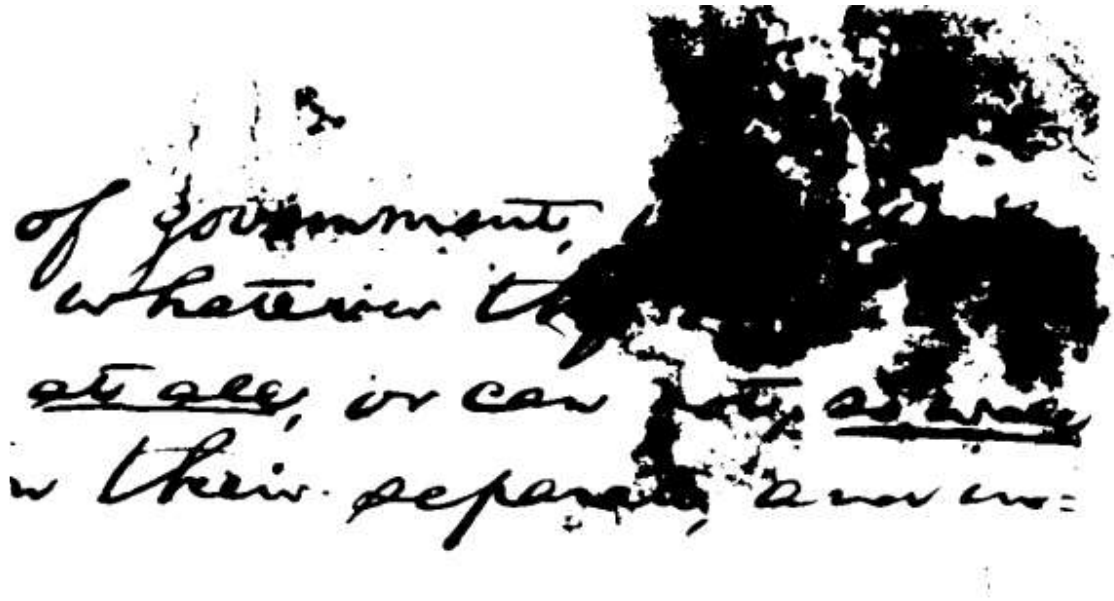 of government,
whatever they
at all, or can not, so well
their separate, and in=